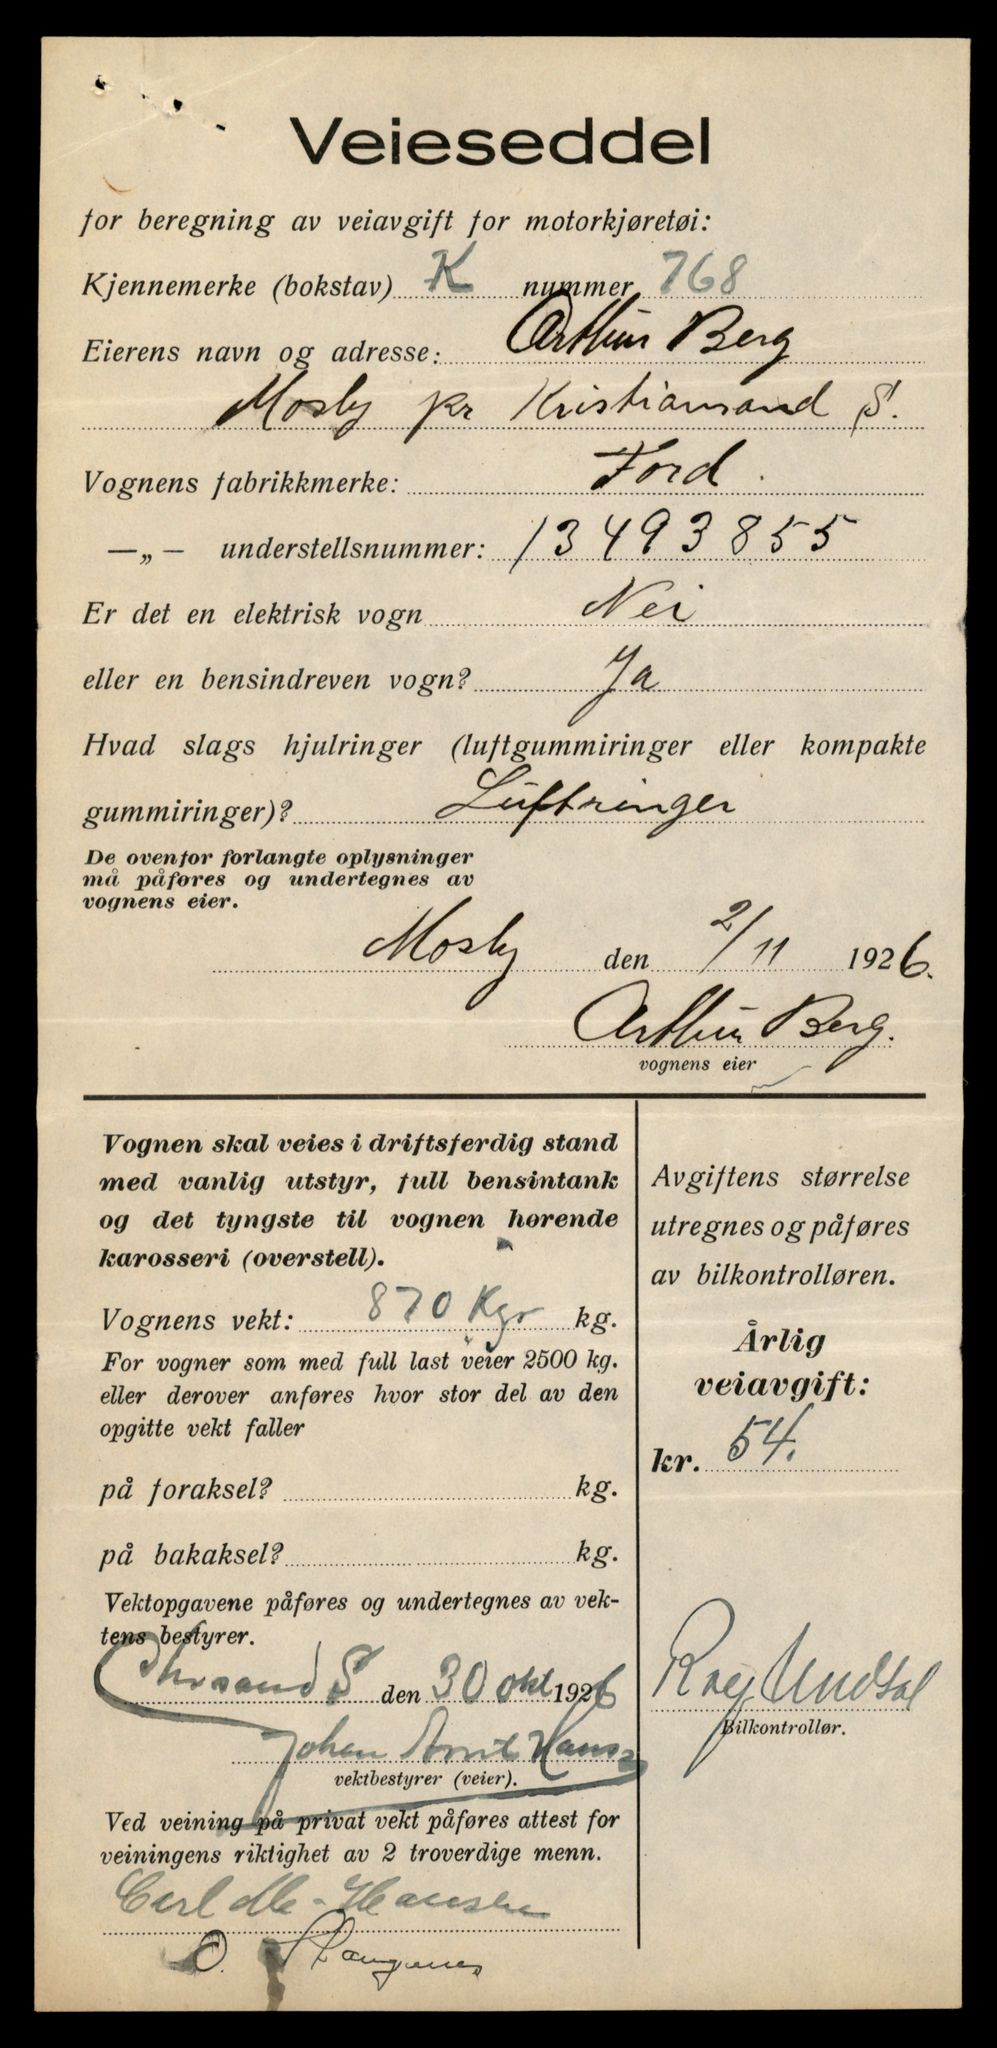 Veieseddel
for beregning av veiavgift for motorkjøretøi:
Kjennemerke (bokstav) K nummer 768
Eierens navn og adresse: Arthur Berg
Mosby pr Kristiansand S.
Vognens fabrikkmerke: Ford.
—„— understellsnummer: 13493855
Er det en elektrisk vogn Nei
eller en bensindreven vogn? Ja
Hvad slags hjulringer (luftgummiringer eller kompakte
gummiringer)? Luftringer
De ovenfor forlangte oplysninger
må påføres og undertegnes av
vognens eier.
Mosby den 2/11 1926.
Arthur Berg.
vognens eier
Vognen skal veies i driftsferdig stand
med vanlig utstyr, full bensintank
og det tyngste til vognen hørende
karosseri (overstell).
Vognens vekt: 870 Kgr kg.
For vogner som med full last veier 2500 kg.
eller derover anføres hvor stor del av den
opgitte vekt faller
på foraksel? kg.
på bakaksel? kg.
Vektopgavene påføres og undertegnes av vek-
tens bestyrer.
Chrsand S den 30 okt 1926
Johan Arnt Hansen
vektbestyrer (veier).
Ved veining på privat vekt påføres attest for
veiningens riktighet av 2 troverdige menn.
Carl M. Hansen
O.
Avgiftens størrelse
utregnes og påføres
av bilkontrolløren.
Årlig
veiavgift:
kr. 54.
Undtal
Bilkontrollør.